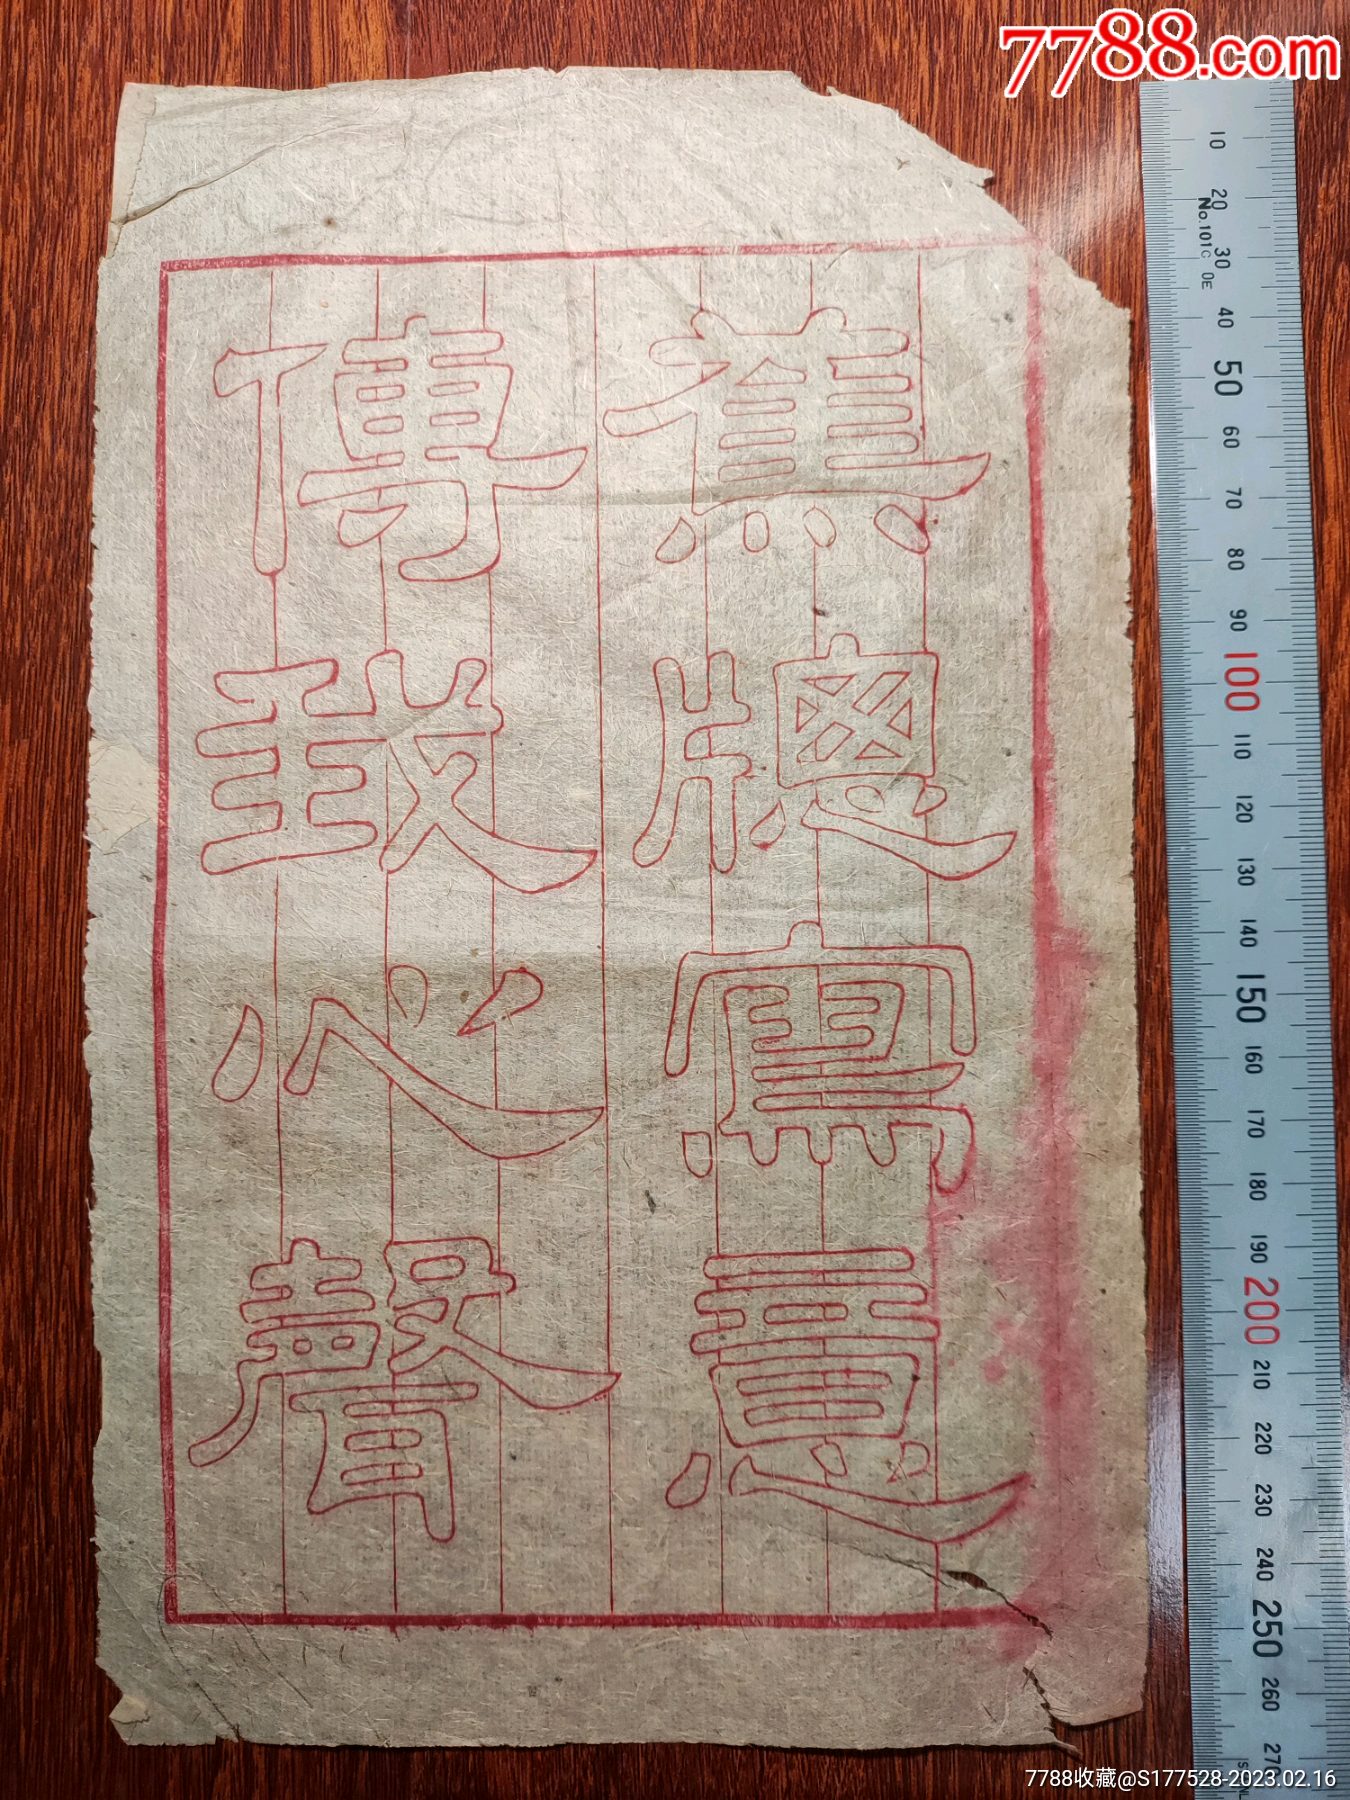 7788.com
焦牕寫意
傳致心聲
10
20
30
40
50
60
70
80
90
100
110
120
130
140
150
160
170
180
190
200
210
220
230
240
250
260
270
7788收藏@S177528-2023.02.16